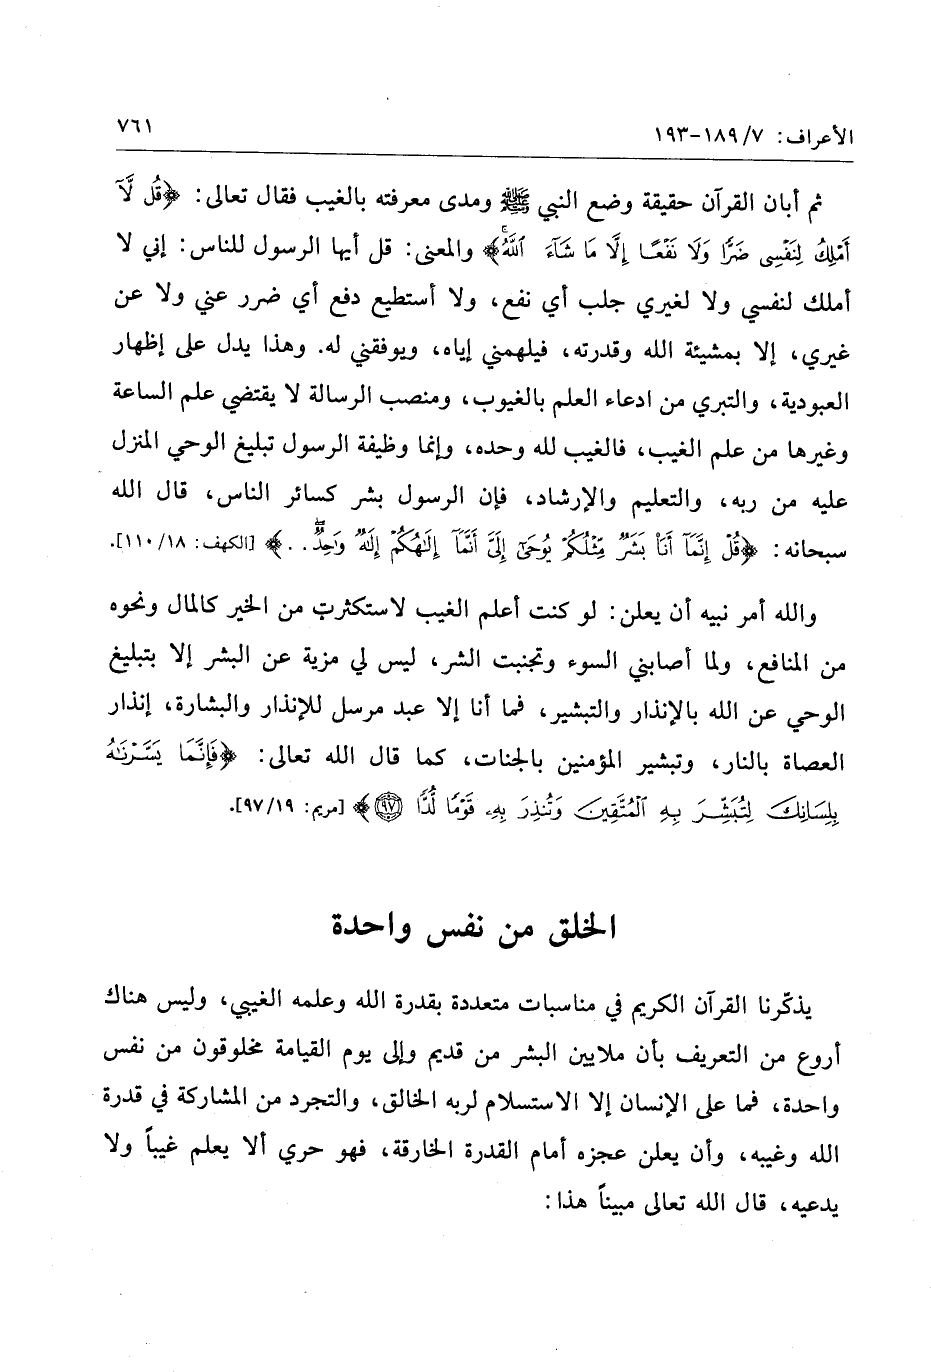 الأعراف: ٧/ ١٨٩-١٩٣
٧٦١
ثم أبان القرآن حقيقة وضع النبي ﷺ ومدى معرفته بالغيب فقال تعالى: ﴿قُل لَّآ
أَمْلِكُ لِنَفْسِى ضَرًّا وَلَا نَفْعًا إِلَّا مَا شَآءَ ٱللَّهُۚ﴾ والمعنى: قل أيها الرسول للناس: إني لا
أملك لنفسي ولا لغيري جلب أي نفع، ولا أستطيع دفع أي ضرر عني ولا عن
غيري، إلا بمشيئة الله وقدرته، فيلهمني إياه، ويوفقني له. وهذا يدل على إظهار
العبودية، والتبري من ادعاء العلم بالغيوب، ومنصب الرسالة لا يقتضي علم الساعة
وغيرها من علم الغيب، فالغيب لله وحده، وإنما وظيفة الرسول تبليغ الوحي المنزل
عليه من ربه، والتعليم والإرشاد، فإن الرسول بشر كسائر الناس، قال الله
سبحانه: ﴿قُلْ إِنَّمَآ أَنَا۠ بَشَرٌ مِّثْلُكُمْ يُوحَىٰٓ إِلَىَّ أَنَّمَآ إِلَٰهُكُمْ إِلَٰهٌ وَٰحِدٌۖ..﴾ [الكهف: ١٨/ ١١٠].
والله أمر نبيه أن يعلن: لو كنت أعلم الغيب لاستكثرت من الخير كالمال ونحوه
من المنافع، ولما أصابني السوء وتجنبت الشر، ليس لي مزية عن البشر إلا بتبليغ
الوحي عن الله بالإنذار والتبشير، فما أنا إلا عبد مرسل للإنذار والبشارة، إنذار
العصاة بالنار، وتبشير المؤمنين بالجنات، كما قال الله تعالى: ﴿فَإِنَّمَا يَسَّرْنَٰهُ
بِلِسَانِكَ لِتُبَشِّرَ بِهِ ٱلْمُتَّقِينَ وَتُنذِرَ بِهِۦ قَوْمًا لُّدًّا ٩٧﴾ [مريم: ١٩/ ٩٧].
الخلق من نفس واحدة
يذكّرنا القرآن الكريم في مناسبات متعددة بقدرة الله وعلمه الغيبي، وليس هناك
أروع من التعريف بأن ملايين البشر من قديم وإلى يوم القيامة مخلوقون من نفس
واحدة، فما على الإنسان إلا الاستسلام لربه الخالق، والتجرد من المشاركة في قدرة
الله وغيبه، وأن يعلن عجزه أمام القدرة الخارقة، فهو حري ألا يعلم غيباً ولا
يدعيه، قال الله تعالى مبيناً هذا: